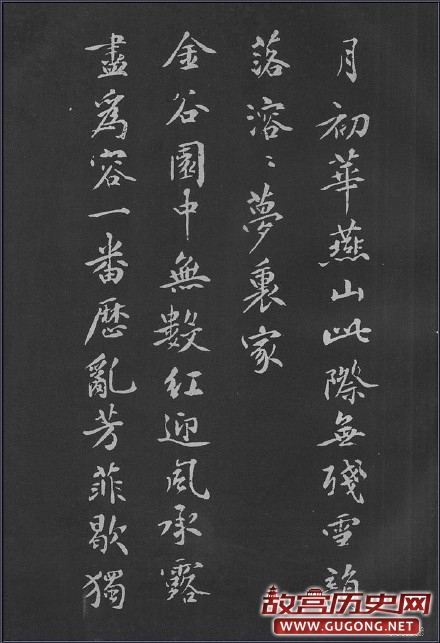 月初華燕山此際無殘雪
落溶〻夢裏家
金谷園中無數紅迎風承露
盡為容一番歷亂芳菲歇獨
故宫历史网
www.GUGONG.net